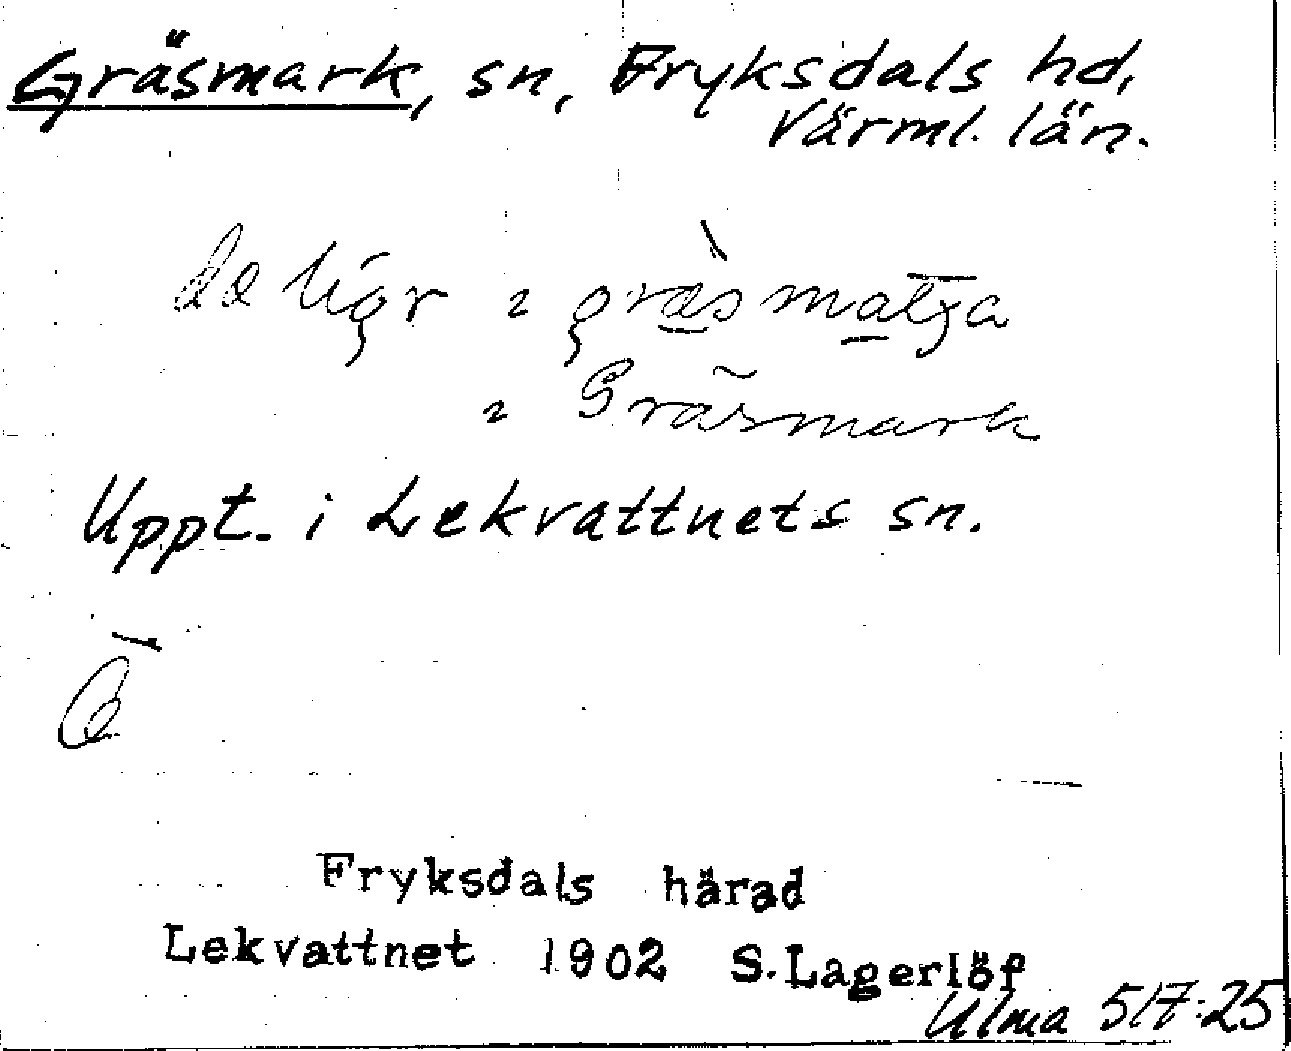 Gräsmark, sn, Fryksdals hd,
Värml. län.
de ligr
Gräsmark
Uppt. i Lekvattnets sn.
Fryksdals härad
Lekvattnet 1902 S. Lagerlöf
Ulma 517:25